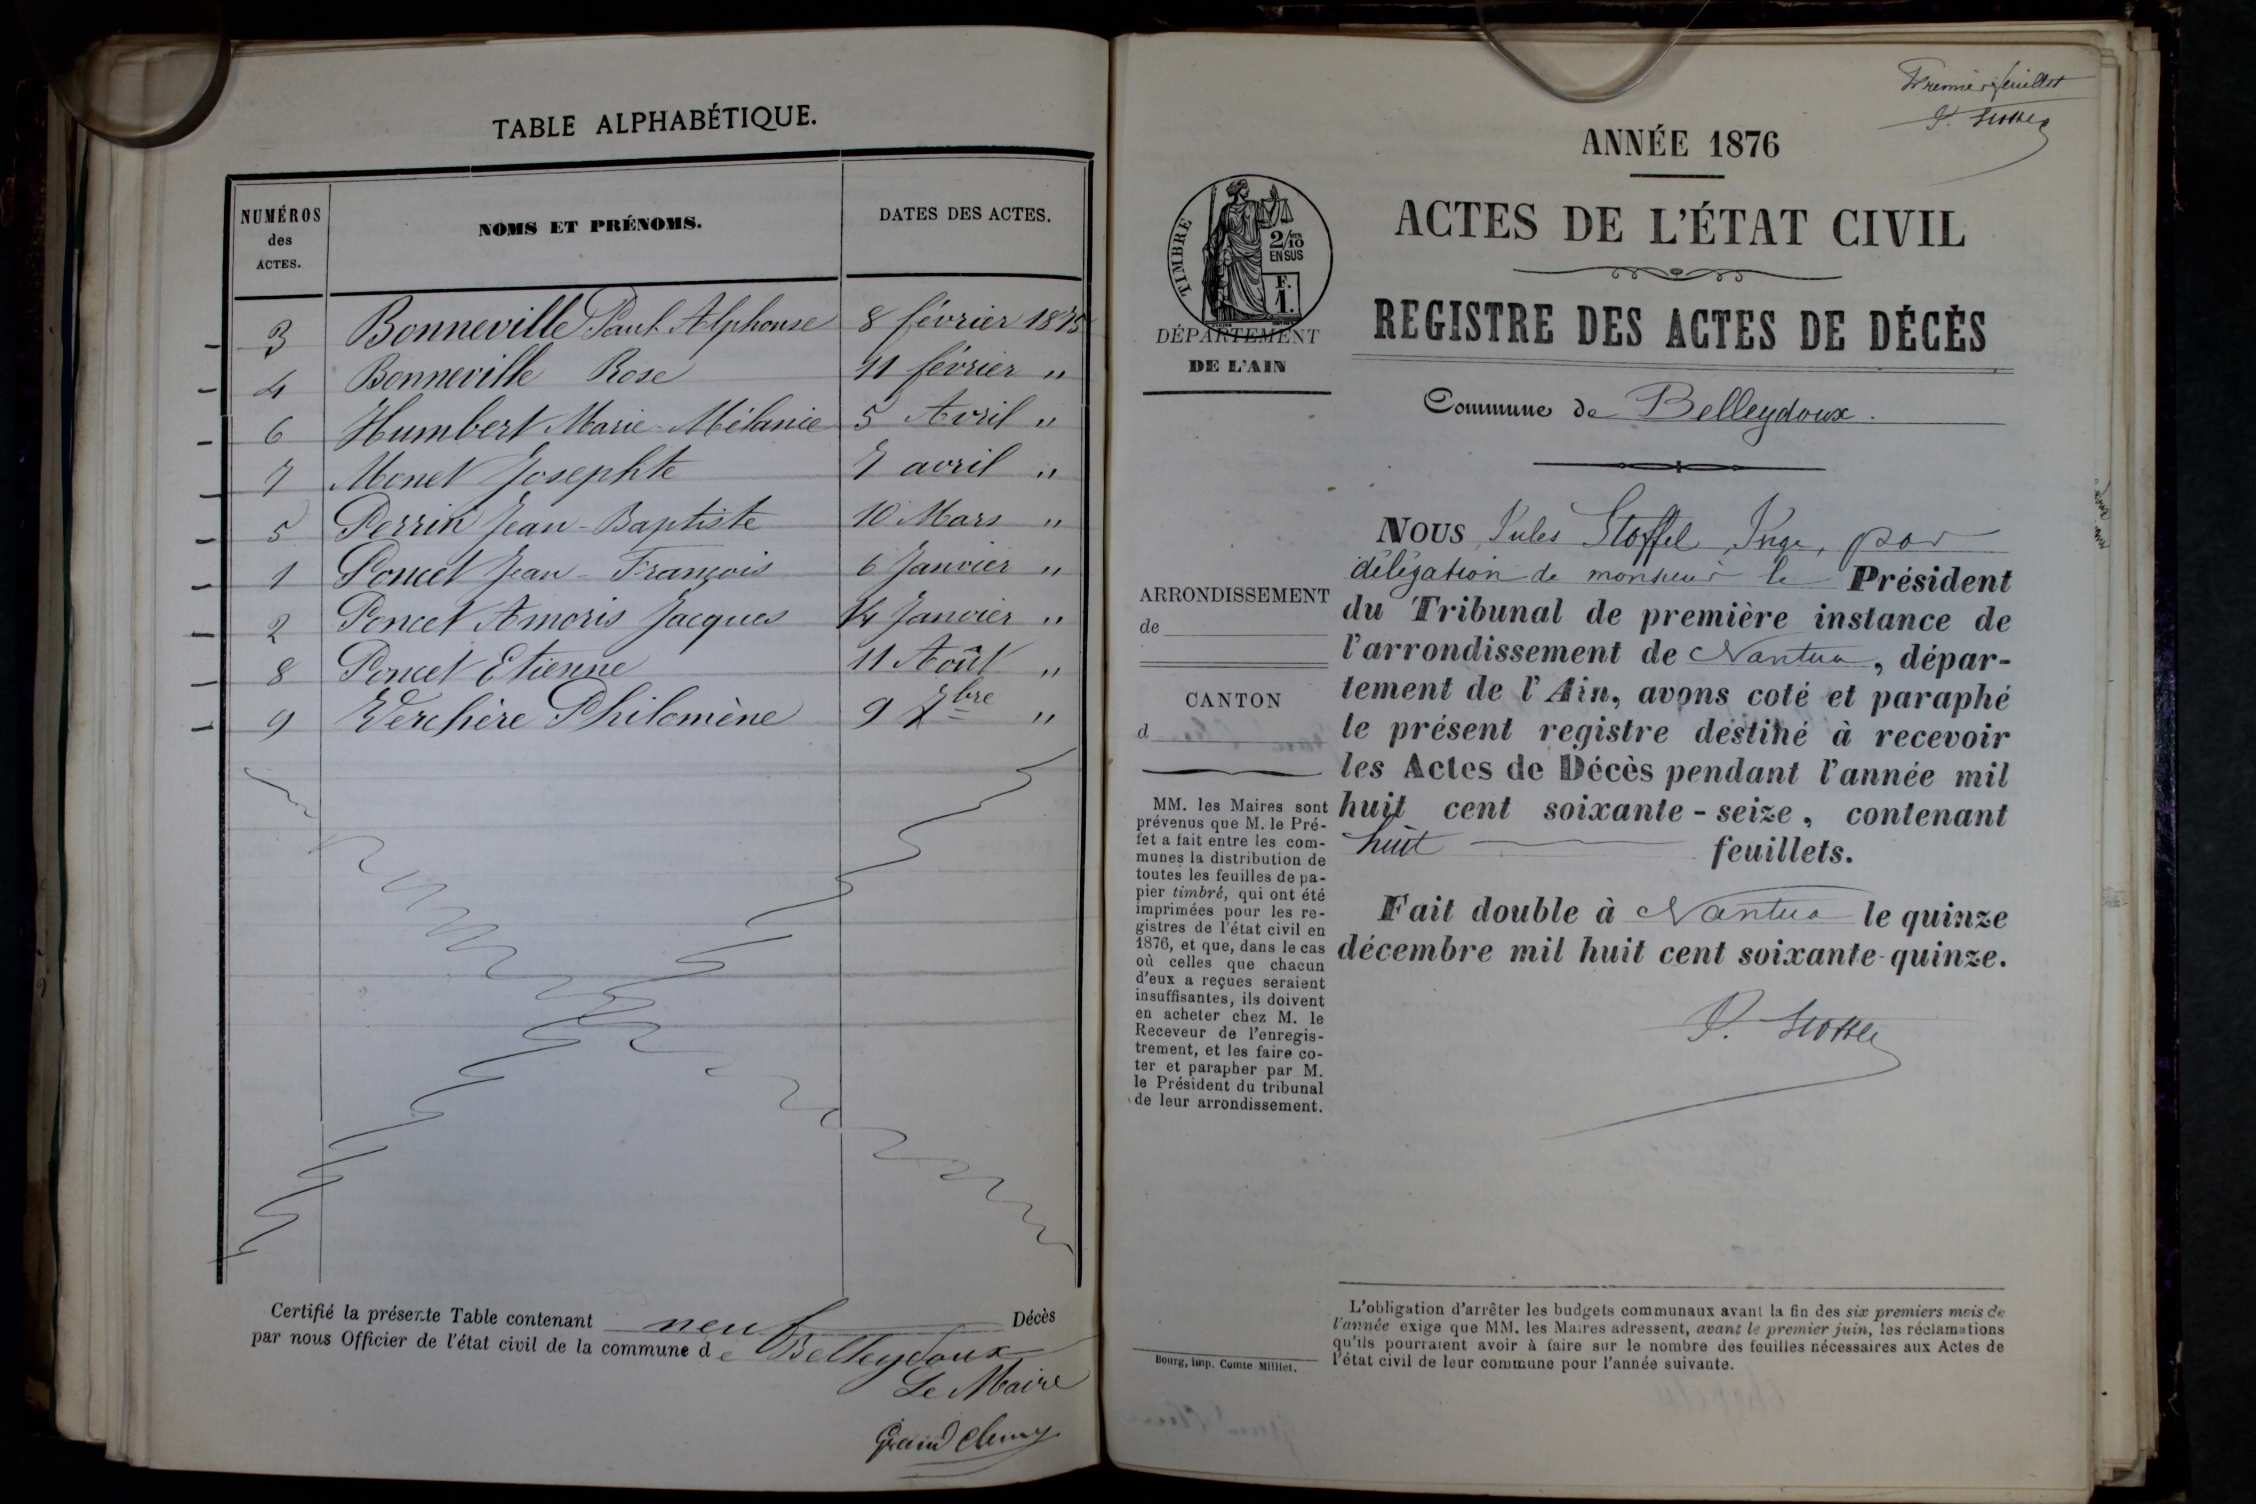 TABLE ALPHABÉTIQUE.
NUMÉROS des ACTES.
NOMS ET PRÉNOMS.
DATES DES ACTES.
3 Bonneville Paul Alphonse 8 février 1875
4 Bonneville Rose 11 février "
6 Humbert Marie-Mélanie 5 Avril "
7 Monet Josephte 7 avril "
5 Perrin Jean-Baptiste 10 Mars "
1 Poncet Jean-François 6 Janvier "
2 Poncet Amoris Jacques 14 Janvier "
8 Poncet Etienne 11 Août "
9 Verchère Philomène 9 Xbre "
Certifié la présente Table contenant neuf Décès
par nous Officier de l'état civil de la commune de Belleydoux
Le Maire
Premier feuillet
ANNÉE 1876
ACTES DE L'ÉTAT CIVIL
REGISTRE DES ACTES DE DÉCÈS
Commune de Belleydoux.
TIMBRE
2/10 EN SUS
F. 1.
DÉPARTEMENT
DE L'AIN
ARRONDISSEMENT
de
CANTON
d
MM. les Maires sont
prévenus que M. le Pré-
fet a fait entre les com-
munes la distribution de
toutes les feuilles de pa-
pier timbré, qui ont été
imprimées pour les re-
gistres de l'état civil en
1876, et que, dans le cas
où celles que chacun
d'eux a reçues seraient
insuffisantes, ils doivent
en acheter chez M. le
Receveur de l'enregis-
trement, et les faire co-
ter et parapher par M.
le Président du tribunal
de leur arrondissement.
Bourg, imp. Comte Milliet.
NOUS Jules Stoffel, Juge, par
délégation de monsieur le Président
du Tribunal de première instance de
l'arrondissement de Nantua, dépar-
tement de l'Ain, avons coté et paraphé
le présent registre destiné à recevoir
les Actes de Décès pendant l'année mil
huit cent soixante-seize, contenant
huit feuillets.
Fait double à Nantua le quinze
décembre mil huit cent soixante-quinze.
L'obligation d'arrêter les budgets communaux avant la fin des six premiers mois de
l'année exige que MM. les Maires adressent, avant le premier juin, les réclamations
qu'ils pourraient avoir à faire sur le nombre des feuilles nécessaires aux Actes de
l'état civil de leur commune pour l'année suivante.